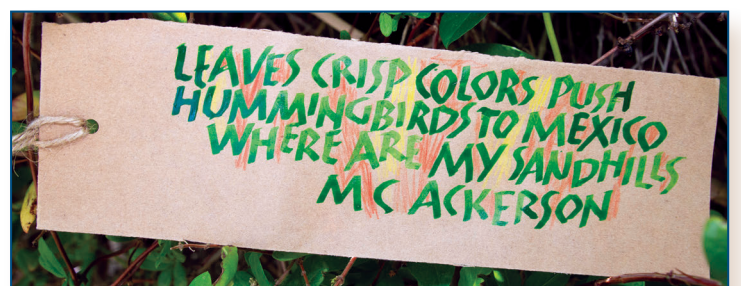 LEAVES CRISP COLORS PUSH
HUMMINGBIRDS TO MEXICO
WHERE ARE MY SANDHILLS
MC ACKERSON